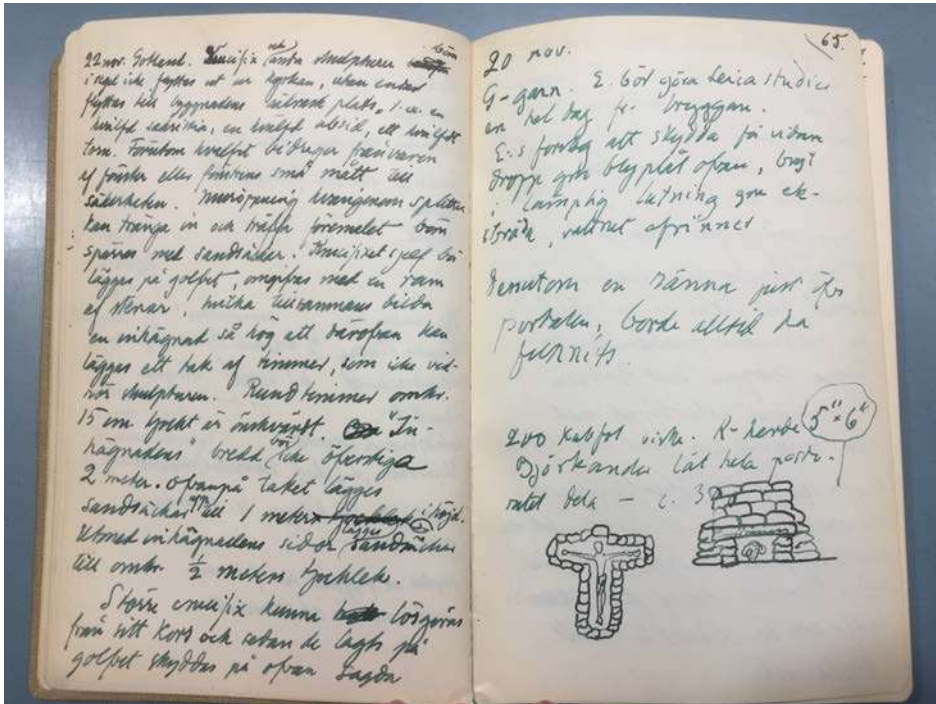 22 nov. Gotland. Crucifix och andra skulpturer böra
i regel icke flyttas ut ur kyrkan, utan endast
flyttas till byggnadens säkraste plats, t. ex. en
hvälfd sakristia, en hvälfd absid, ett hvälfdt
torn. Förutom hvalfvet bidrager frånvaron
af fönster eller fönstrens små mått till
säkerheten. Muröppning hvarigenom splitter
kan tränga in och träffa föremålet bör
spärras med sandsäckar. Krucifixet sjelf bör
lägges på golfvet, omgifvas med en ram
af stenar, hvilka tillsammans bilda
en inhägnad så hög att därofvan kan
lägges ett tak af timmer, som icke vid-
rör skulpturen. Rundtimmer omkr.
15 cm. tjockt är önskvärdt. In-
hägnadens bredd bör icke öfverstiga
2 meter. Ofvanpå taket lägges
sandsäckar till 1 meter i höjd.
Utmed inhägnadens sidor lägges sandsäckar
till omkr. ½ meters tjocklek.
Större crucifix kunna lösgöras
från sitt kors och sedan de lagts på
golfvet skyddas på ofvan sagda
65.
20 nov.
G-garn. E. bör göra Leica studier
en hel dag fr. bryggan.
E:s förslag att skydda för vidare
dropp gm blyplåt ofvan, böjd
i lämplig lutning gm ek-
bräda, vattnet afrinner.
Dessutom en ränna just öfver
portalen, borde alltid ha
funnits.
200 kubfot virke. K-herde
Björkander låt hela
dela – c. 300
5" × 6"